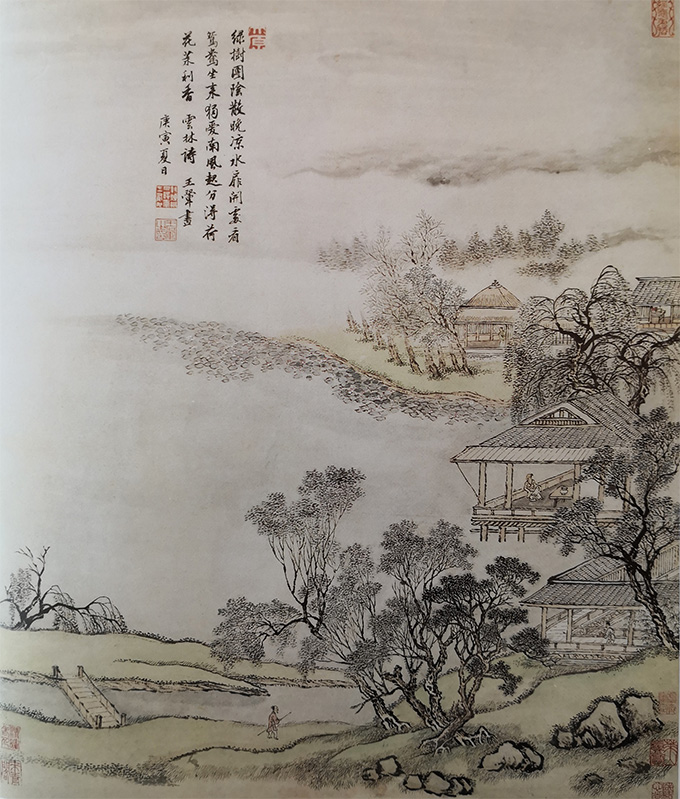 綠樹團陰散晚凉水扉開處看
鴛鴦坐来獨愛南風起分得荷
花茉利香 雲林詩 王翬畫
庚寅夏日